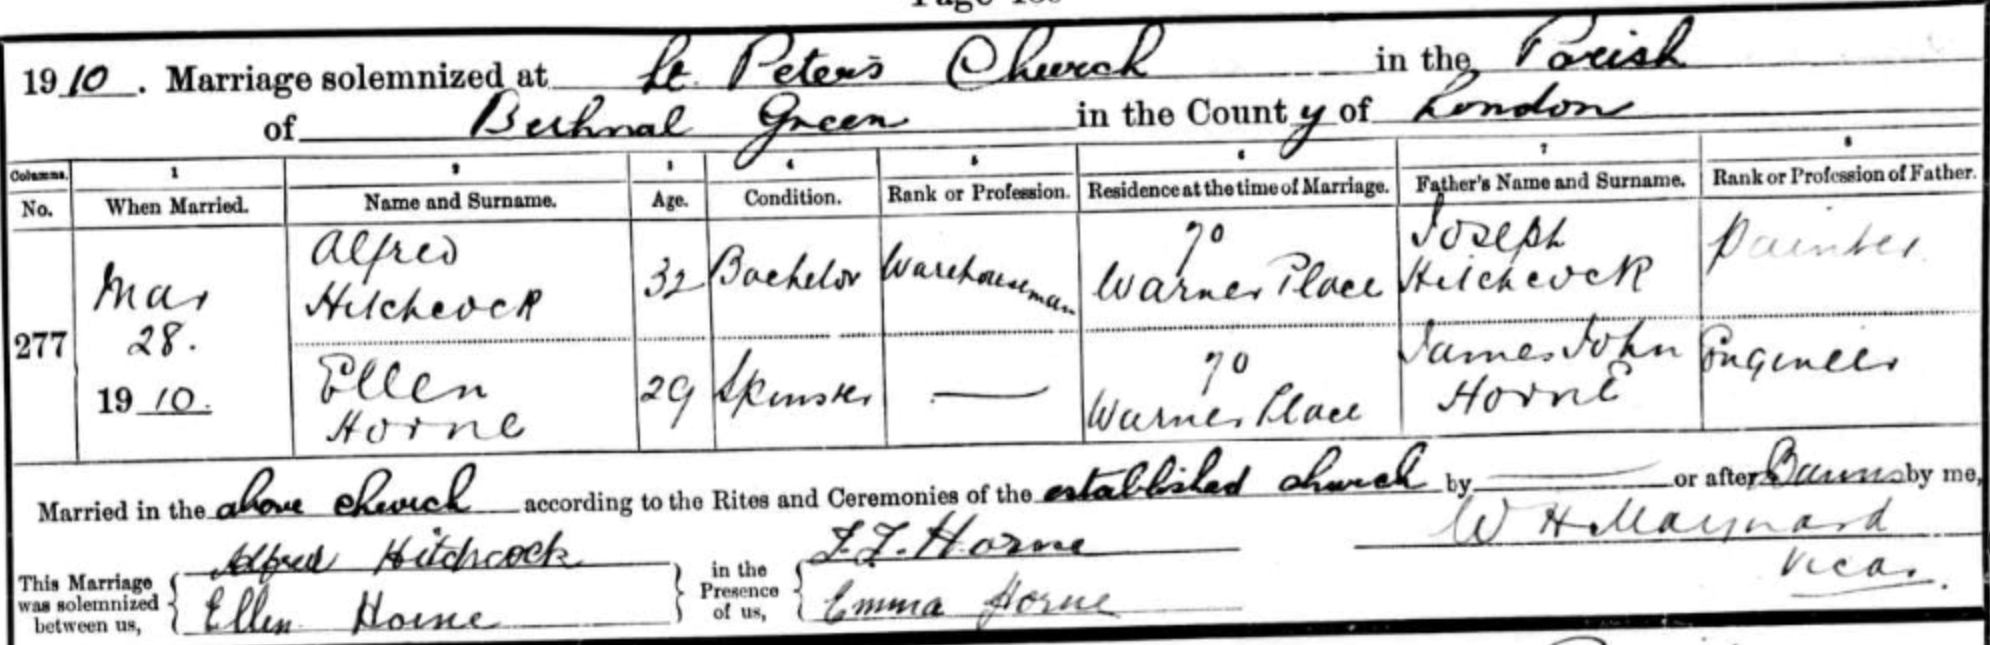 1910. Marriage solemnized at St. Peter's Church in the Parish
of Bethnal Green in the County of London
Columns. 1 2 3 4 5 6 7 8
No. When Married. Name and Surname. Age. Condition. Rank or Profession. Residence at the time of Marriage. Father's Name and Surname. Rank or Profession of Father.
277 Mar 28. 1910. Alfred Hitchcock 32 Bachelor Warehouseman 70 Warner Place Joseph Hitchcock Painter
Ellen Horne 29 Spinster — 70 Warner Place James John Horne Engineer
Married in the above church according to the Rites and Ceremonies of the established church by — or after Banns by me,
W H Maynard
Vicar.
This Marriage was solemnized between us, { Alfred Hitchcock } in the Presence of us, { J. J. Horne
Ellen Horne Emma Horne